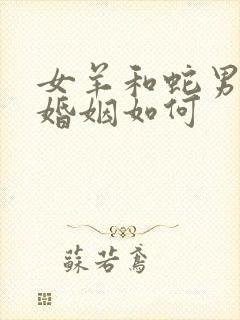 女羊和蛇男
婚姻如何
蘇若鸢